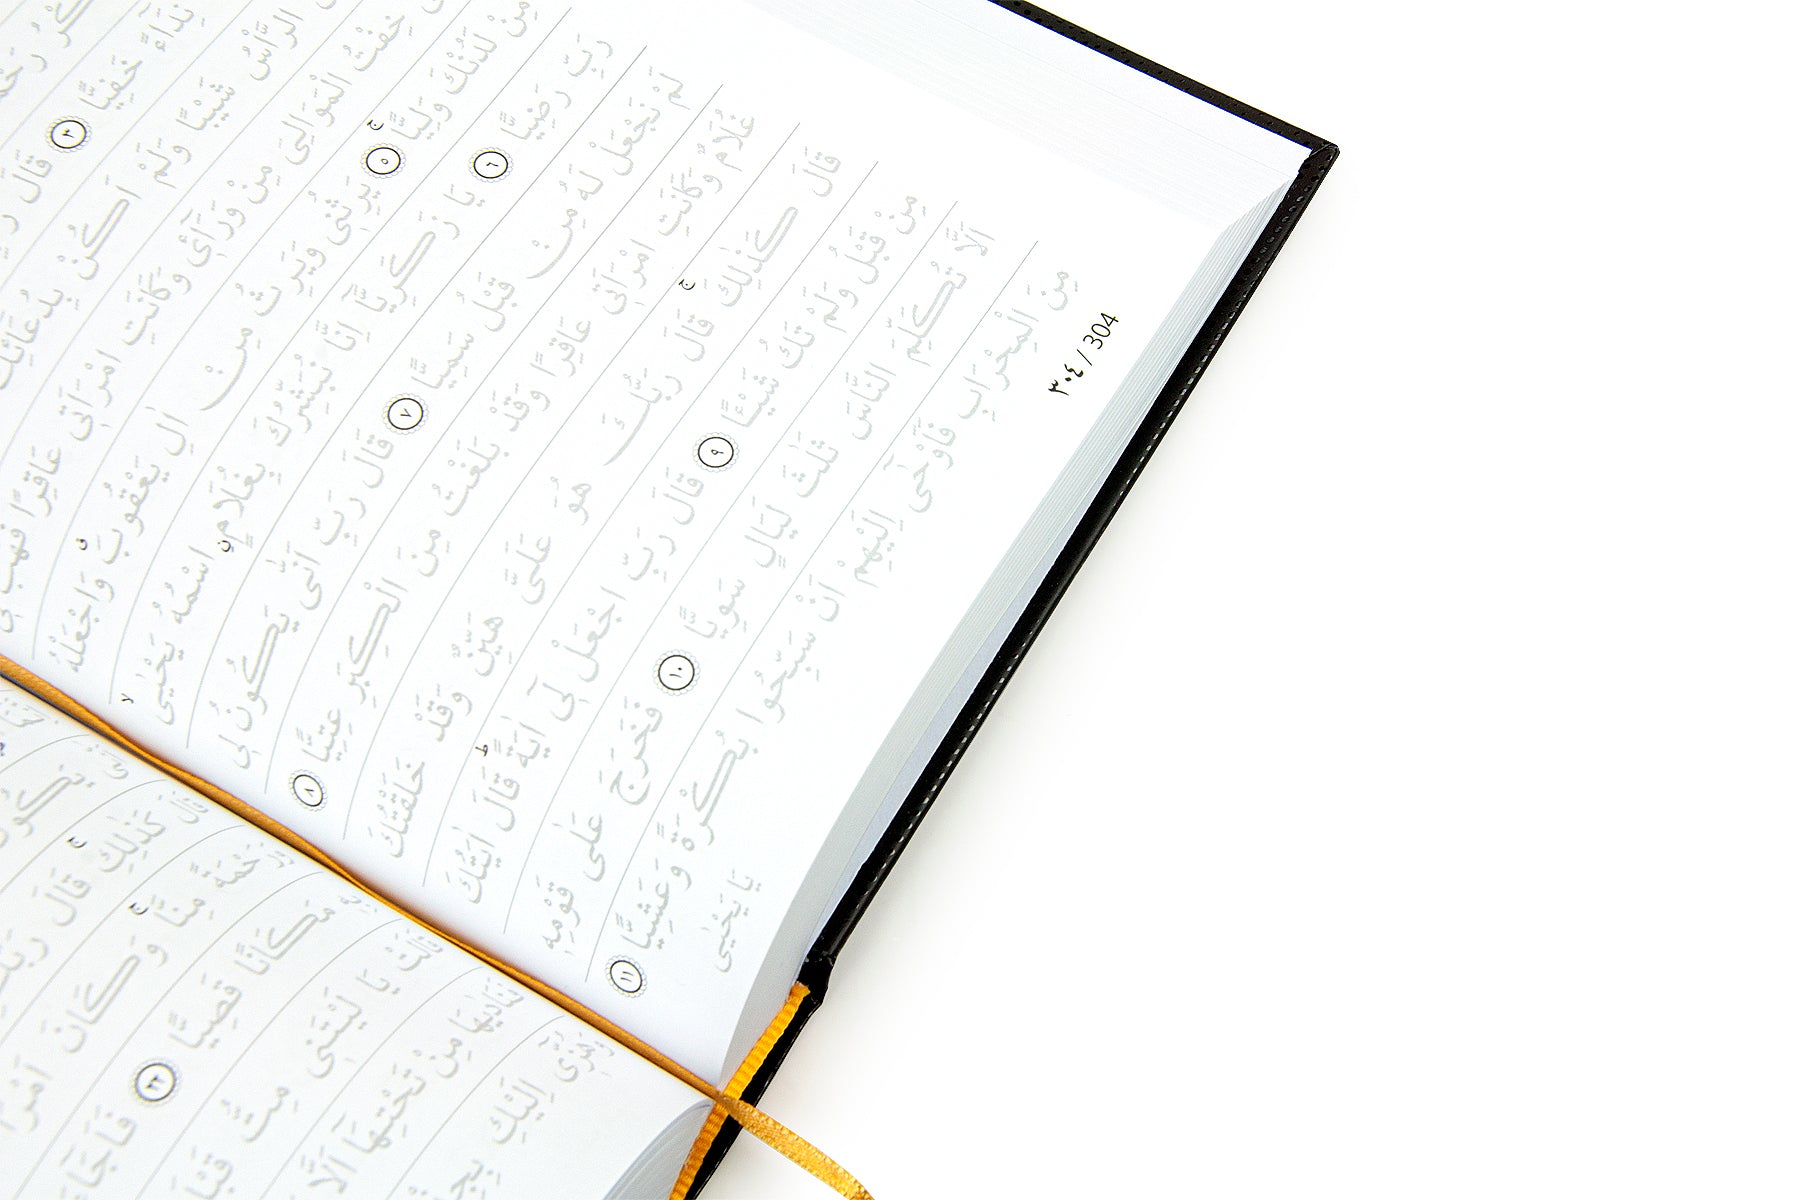 نِدَآءً خَفِيًّا ٣ قَالَ
الرَّأْسُ شَيْبًا وَلَمْ اَكُنْ بِدُعَآئِكَ
خِفْتُ الْمَوَالِيَ مِنْ وَرَآئ۪ي وَكَانَتِ امْرَاَت۪ي عَاقِرًا فَهَبْ ل۪ي
مِنْ لَدُنْكَ وَلِيًّاۚ ٥ يَرِثُن۪ي وَيَرِثُ مِنْ اٰلِ يَعْقُوبَۗ وَاجْعَلْهُ
رَبِّ رَضِيًّا ٦ يَا زَكَرِيَّآ اِنَّا نُبَشِّرُكَ بِغُلَامٍۨ اسْمُهُ يَحْيٰىۙ
لَمْ نَجْعَلْ لَهُ مِنْ قَبْلُ سَمِيًّا ٧ قَالَ رَبِّ اَنّٰى يَكُونُ ل۪ي
غُلَامٌ وَكَانَتِ امْرَاَت۪ي عَاقِرًا وَقَدْ بَلَغْتُ مِنَ الْكِبَرِ عِتِيًّا ٨
قَالَ كَذٰلِكَۚ قَالَ رَبُّكَ هُوَ عَلَيَّ هَيِّنٌ وَقَدْ خَلَقْتُكَ
مِنْ قَبْلُ وَلَمْ تَكُ شَيْـًٔا ٩ قَالَ رَبِّ اجْعَلْ ل۪ٓي اٰيَةًۜ قَالَ اٰيَتُكَ
اَلَّا تُكَلِّمَ النَّاسَ ثَلٰثَ لَيَالٍ سَوِيًّا ١٠ فَخَرَجَ عَلٰى قَوْمِه۪
مِنَ الْمِحْرَابِ فَاَوْحٰٓى اِلَيْهِمْ اَنْ سَبِّحُوا بُكْرَةً وَعَشِيًّا ١١
يَا يَحْيٰى
٣٠٤ / 304
قَالَ كَذٰلِكِۚ قَالَ رَبُّكِ
وَرَحْمَةً مِنَّاۚ وَكَانَ اَمْرًا
مَكَانًا قَصِيًّا ٢٢ فَاَجَآءَ
قَالَتْ يَا لَيْتَن۪ي مِتُّ قَبْلَ
فَنَادٰيهَا مِنْ تَحْتِهَآ اَلَّا
وَهُزّ۪ٓي اِلَيْكِ